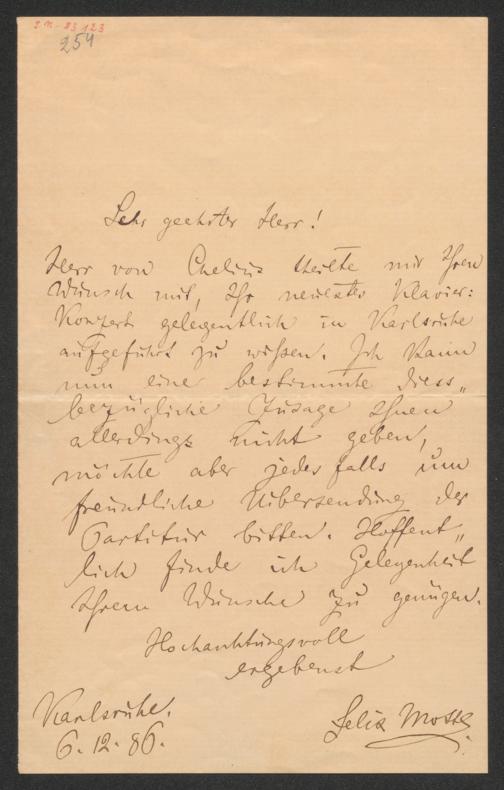 I.N. 83.123
254
Sehr geehrter Herr!
Herr von Chelius theilte mir Ihren
Wunsch mit, Ihr neuestes Klavier:
Konzert gelegentlich in Karlsruhe
aufgeführt zu wissen. Ich kann
nun eine bestimmte diess„
bezügliche Zusage Ihnen
allerdings nicht geben,
möchte aber jedesfalls um
freundliche Übersendung der
Partitur bitten. Hoffent„
lich finde ich Gelegenheit
Ihrem Wunsche zu genügen.
Hochachtungsvoll
ergebenst
Karlsruhe.
6.12.86.
Felix Mottl